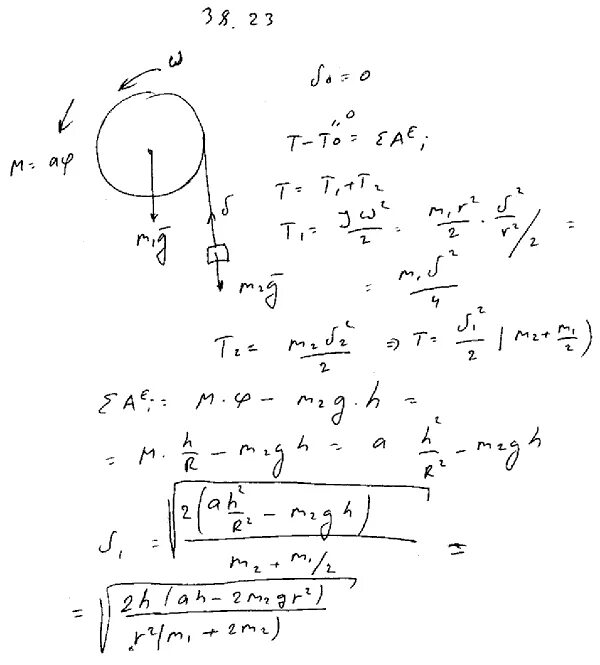 38.23
ω
M = aφ
m₁ḡ
υ
m₂ḡ
υ₀ = 0
T - T₀ = ΣAᴱᵢ
0
T = T₁ + T₂
T₁ = Jω²/2 = m₁r²/2 · υ²/r² /2 =
= m₁υ²/4
T₂ = m₂υ₂²/2 ⇒ T = υ₁²/2 (m₂ + m₁/2)
ΣAᴱᵢ = M·φ - m₂g·h =
= M·h/R - m₂gh = a h²/R² - m₂gh
υ₁ = √(2(ah²/R² - m₂gh)/(m₂ + m₁/2)) =
= √(2h(ah - 2m₂gr²)/(r²(m₁ + 2m₂)))